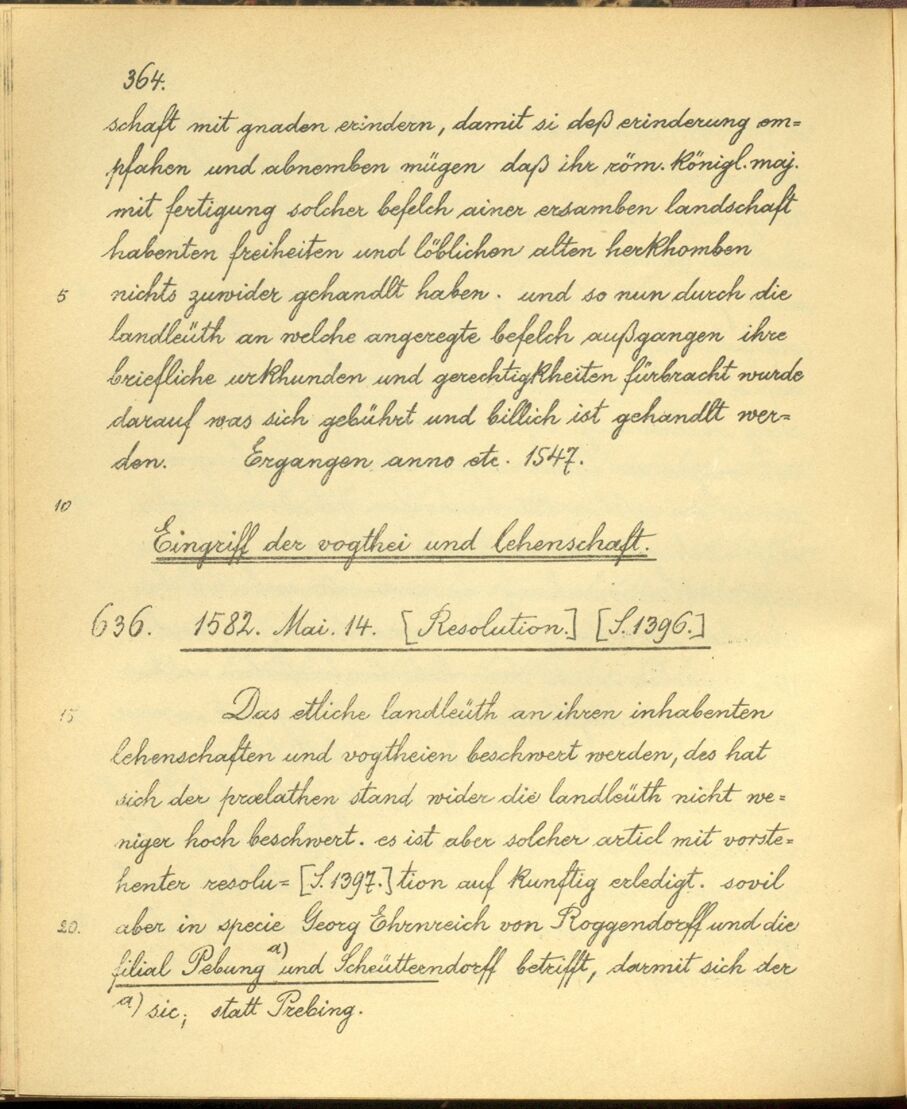 364.
schaft mit gnaden erindern, damit si deß erinderung em=
pfahen und abnemben mügen daß ihr röm. königl. maj.
mit fertigung solcher befelch ainer ersamben landschaft
habenten freiheiten und löblichen alten herkhomben
5 nichts zuwider gehandlt haben. und so nun durch die
landleüth an welche angeregte befelch außgangen ihre
briefliche urkhunden und gerechtigkheiten fürbracht wurde
darauf was sich gebührt und billich ist gehandlt wer=
den. Ergangen anno etc. 1547.
10
Eingriff der vogthei und lehenschaft.
636. 1582. Mai. 14. [Resolution.] [S. 1396.]
15 Das etliche landleüth an ihren inhabenten
lehenschaften und vogtheien beschwert werden, des hat
sich der prælathen stand wider die landleüth nicht we=
niger hoch beschwert. es ist aber solcher articl mit vorste=
henter resolu= [S. 1397.] tion auf kunftig erledigt. sovil
20. aber in specie Georg Ehrnreich von Roggendorff und die
filial Pebung a) und Scheütterndorff betrifft, darmit sich der
a) sic; statt Prebing.